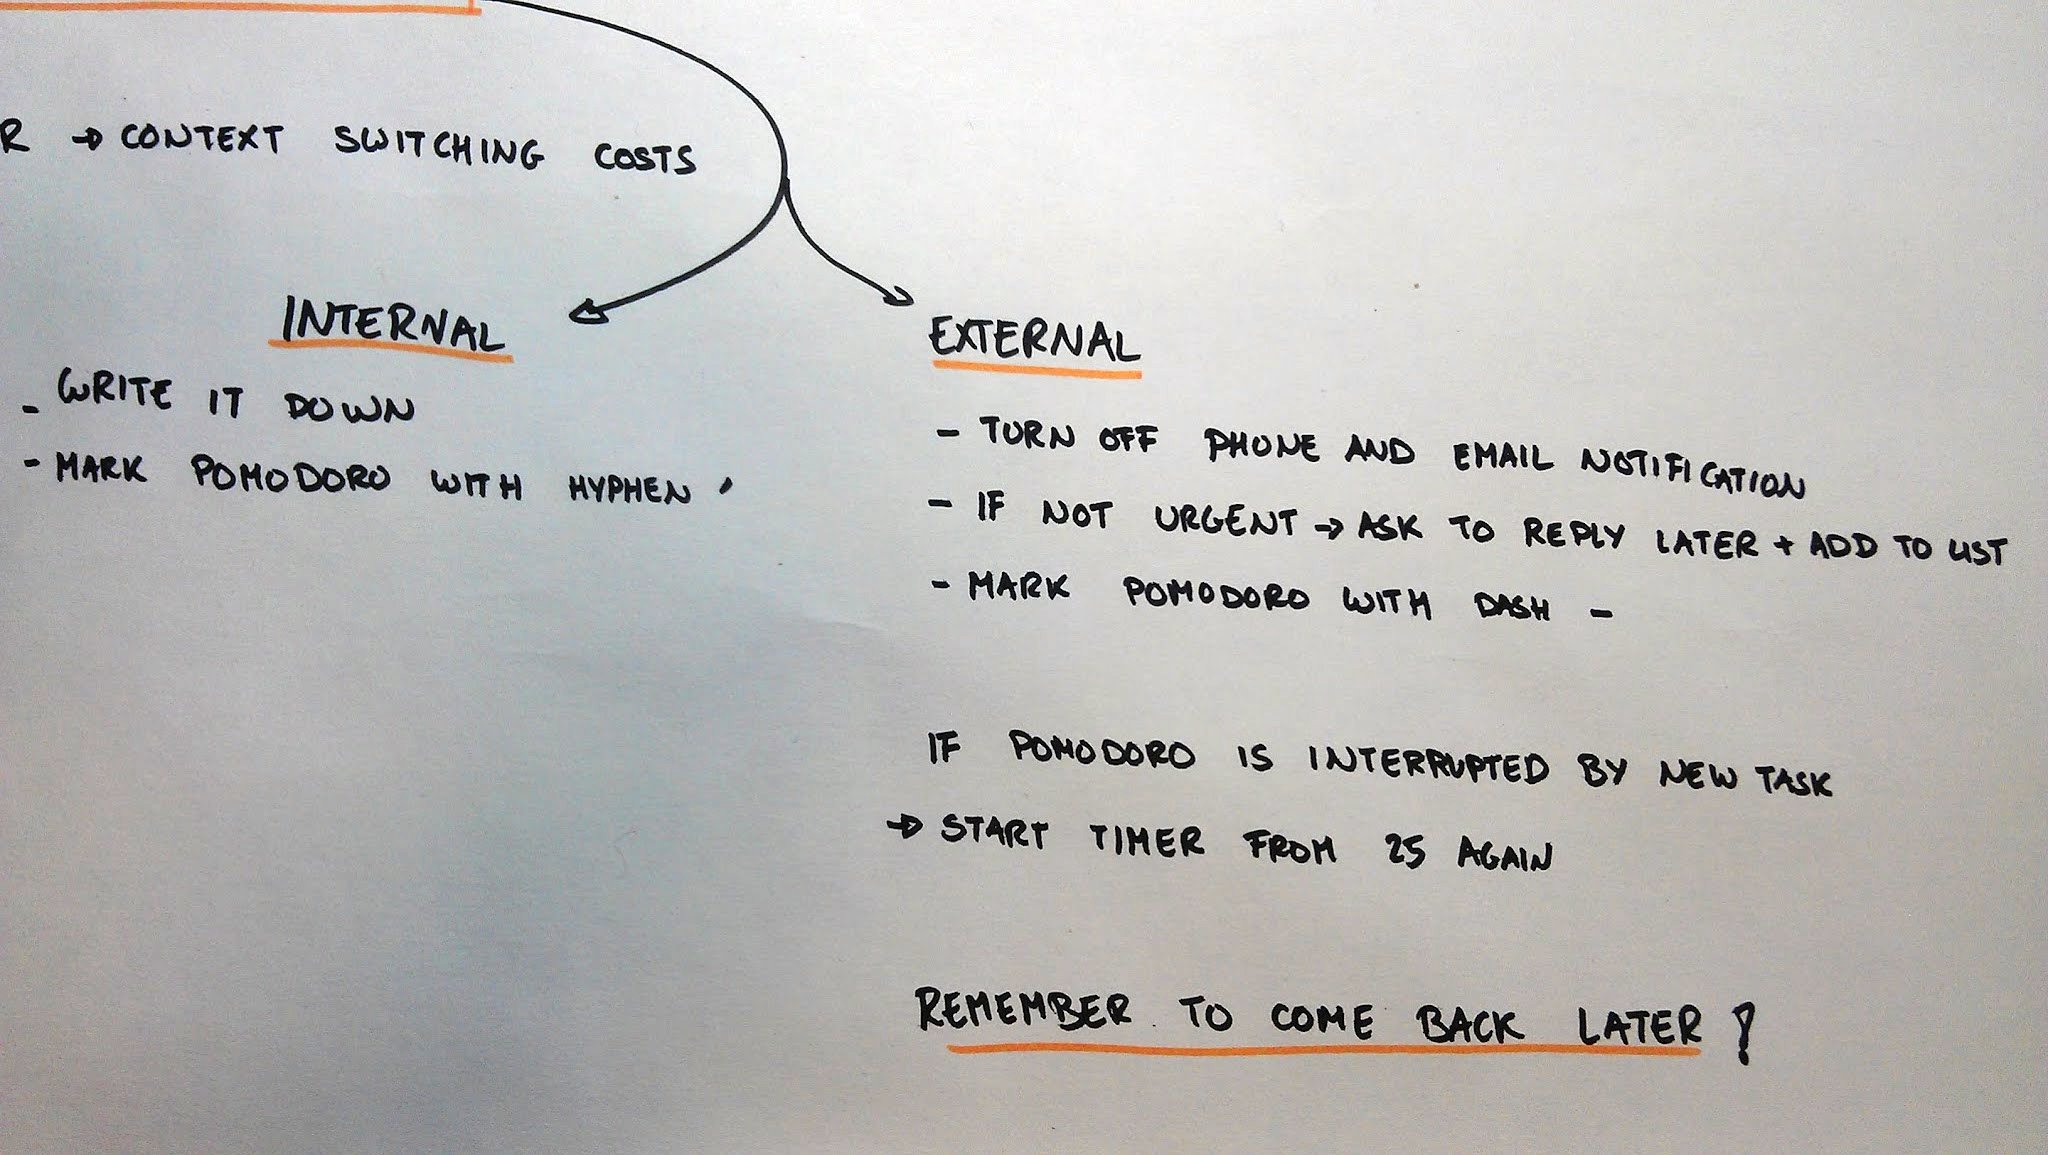 R → CONTEXT SWITCHING COSTS
INTERNAL
- WRITE IT DOWN
- MARK POMODORO WITH HYPHEN '
EXTERNAL
- TURN OFF PHONE AND EMAIL NOTIFICATION
- IF NOT URGENT → ASK TO REPLY LATER + ADD TO LIST
- MARK POMODORO WITH DASH -
IF POMODORO IS INTERRUPTED BY NEW TASK
→ START TIMER FROM 25 AGAIN
REMEMBER TO COME BACK LATER!